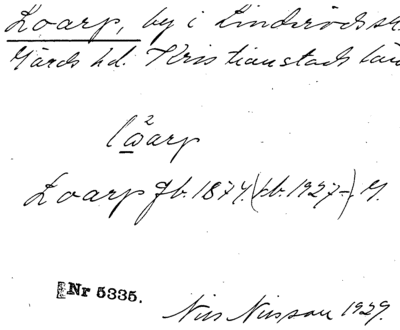 Loarp, by i Linderöds sk.
Gärds hd. Kristianstads län
lωarp
Loarp Jb. 1874. (kb. 1927-) M.
Nr 5335.
Nils Nilsson 1929.